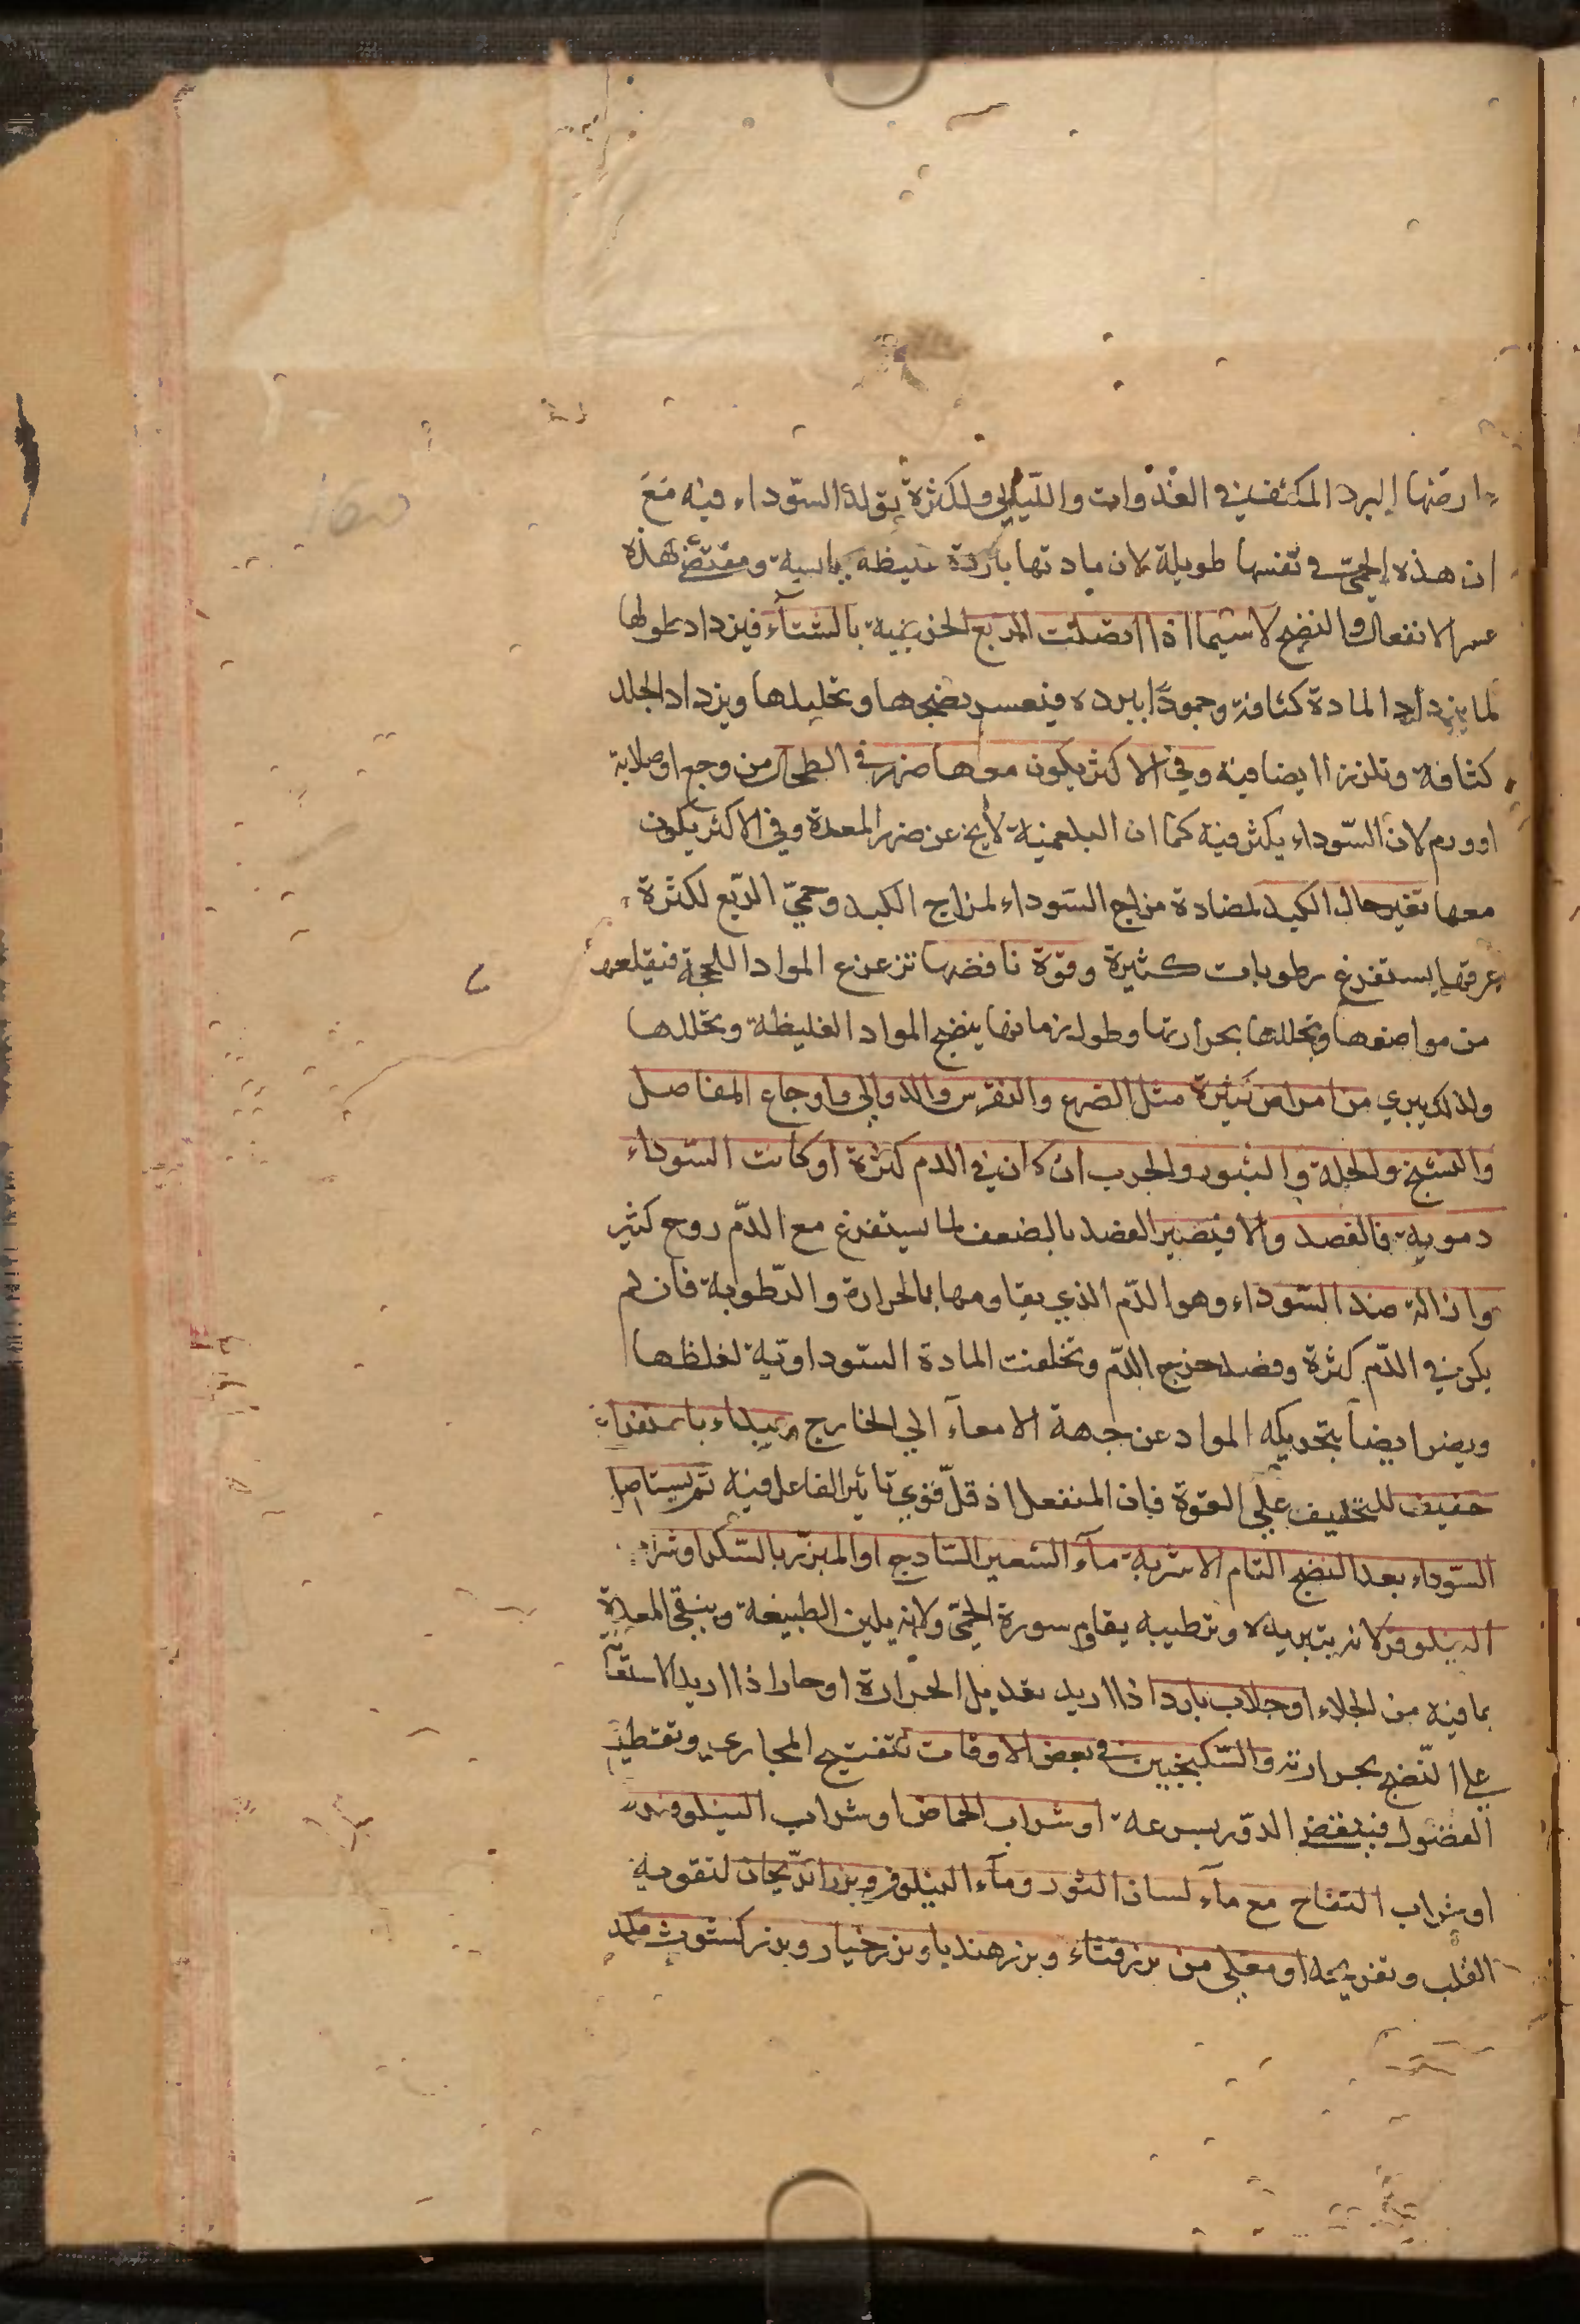 ارضها البرد المكثف في الغدوات والليالي ولكثرة تولد السوداء فيه مَعَ
ان هذه الحمى في نفسها طويلة لان مادتها باردة غليظه يابسية ومقتضى هذه
عسر الانفعال والنضج لاسيما اذا اتصلت الربع الخريفية بالشتآء فيزداد طولها
لما يزداد المادة كثافة وجمودًا ببرده فيعسر نضجها وتحليلها ويزداد الجلد
كثافة وتلززا ايضا فيه وفي الاكثر يكون معها ضرر في الطحال من وجع او صلابة
او ورم لان السّوداء يكثر فيه كما ان البلغمية لا يخ عن ضرر المعدة وفي الاكثر يكون
معها تغير حال الكبد لمضادة مزاج السّوداء لمزاج الكبد وحمىّ الربع لكثرة
عرقها يستفرغ رطوبات كثيرة وقوة نافضها تزعزع المواد اللحجة فيقلعها
من مواضعها وتحللها بحرارتها وطول زمانها ينضج المواد الغليظة وتحللها
ولذلك يبري من امراض كثيرة مثل الصرع والنقرس والدوالي واوجاع المفاصل
والتشنج والحكة والبثور والجرب ان كان في الدم كثرة او كانت السّوداء
دموية فالفصد والا فيضير الفصد بالضعف لما يستفرغ مع الدّم روح كثير
وازالة ضد السّوداء وهو الدّم الذي يقاومها بالحرارة والرّطوبة فان لم
يكن في الدّم كثرة وفصد خرج الدّم وتخلفت المادة السّوداوّية لغلظها
ويضر ايضاً بتحريكه المواد عن جهة الامعآء الي الخارج ويبداء باستفراغ
خفيف للتخفيف علي القوة فان المنفعل اذ قلّ قوي تاثير الفاعل فيه ثم يستاصل
السّوداء بعد النضج التام الاشربة مآء الشعير السّادج او المبزّر بالسّكر او شراب
النيلوفر لانه بتبريده وترطيبه يقاوم سورة الحمّي ولانه يلين الطبيعة وينقي المعدة
بما فيه من الجلاء او جلاب بارد اذا اريد تعديل الحرارة او حار اذا اريد الاستعانة
علي النّضج بحرارته والسّكنجبين في بعض الاوقات لتفتيح المجاري وتقطيع
الفضول فينقض الدور بسرعة او شراب الحماض او شراب النيلوفر
او شراب التفاح مع مآء لسان الثور ومآء النيلوفر وبزر الرّيحان لتقوية
القلب وتفريحه او مغلي من بزر قثاء وبزر هندبا وبزر خيار وبزر كشوث